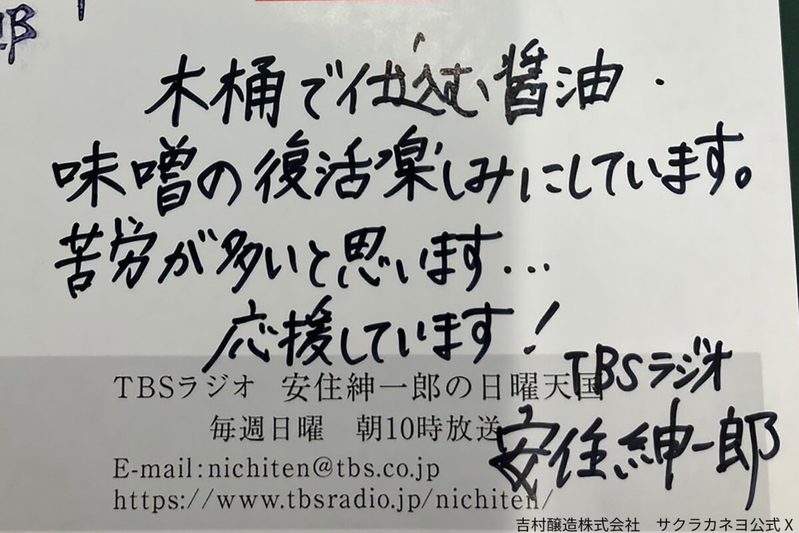 郎
木桶で仕込む醤油・
味噌の復活楽しみにしています。
苦労が多いと思います...
応援しています!
TBSラジオ
安住紳一郎
TBSラジオ 安住紳一郎の日曜天国
毎週日曜 朝10時放送
E-mail:nichiten@tbs.co.jp
https://www.tbsradio.jp/nichiten/
吉村醸造株式会社 サクラカネヨ公式X